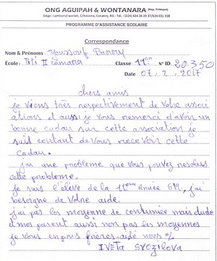 ONG AGUIPAH & WONTANARA
PROGRAMME D'ASSISTANCE SCOLAIRE
Correspondance
Nom & Prénoms Youssouf
École: Classe 11ème N° ID 20350
Date 07-2-2017
chers amis
je viens très respectivement de votre associ
ations et aussi je vous remerci d'avoir un
bonne cadau sur cette association je
suis contant de vous recevoir cette
cadau.
j'ai une problème que vous pouvez resoudre
cette problème.
je suis l'élève de la 11ème année SM, j'ai
besoigne de votre aide.
j'ai pas les moyenne de continuée mais étude
mon parent aussi non pas les moyennes
je vous en pris frères aidé nous
IVETA SVOZILOVA